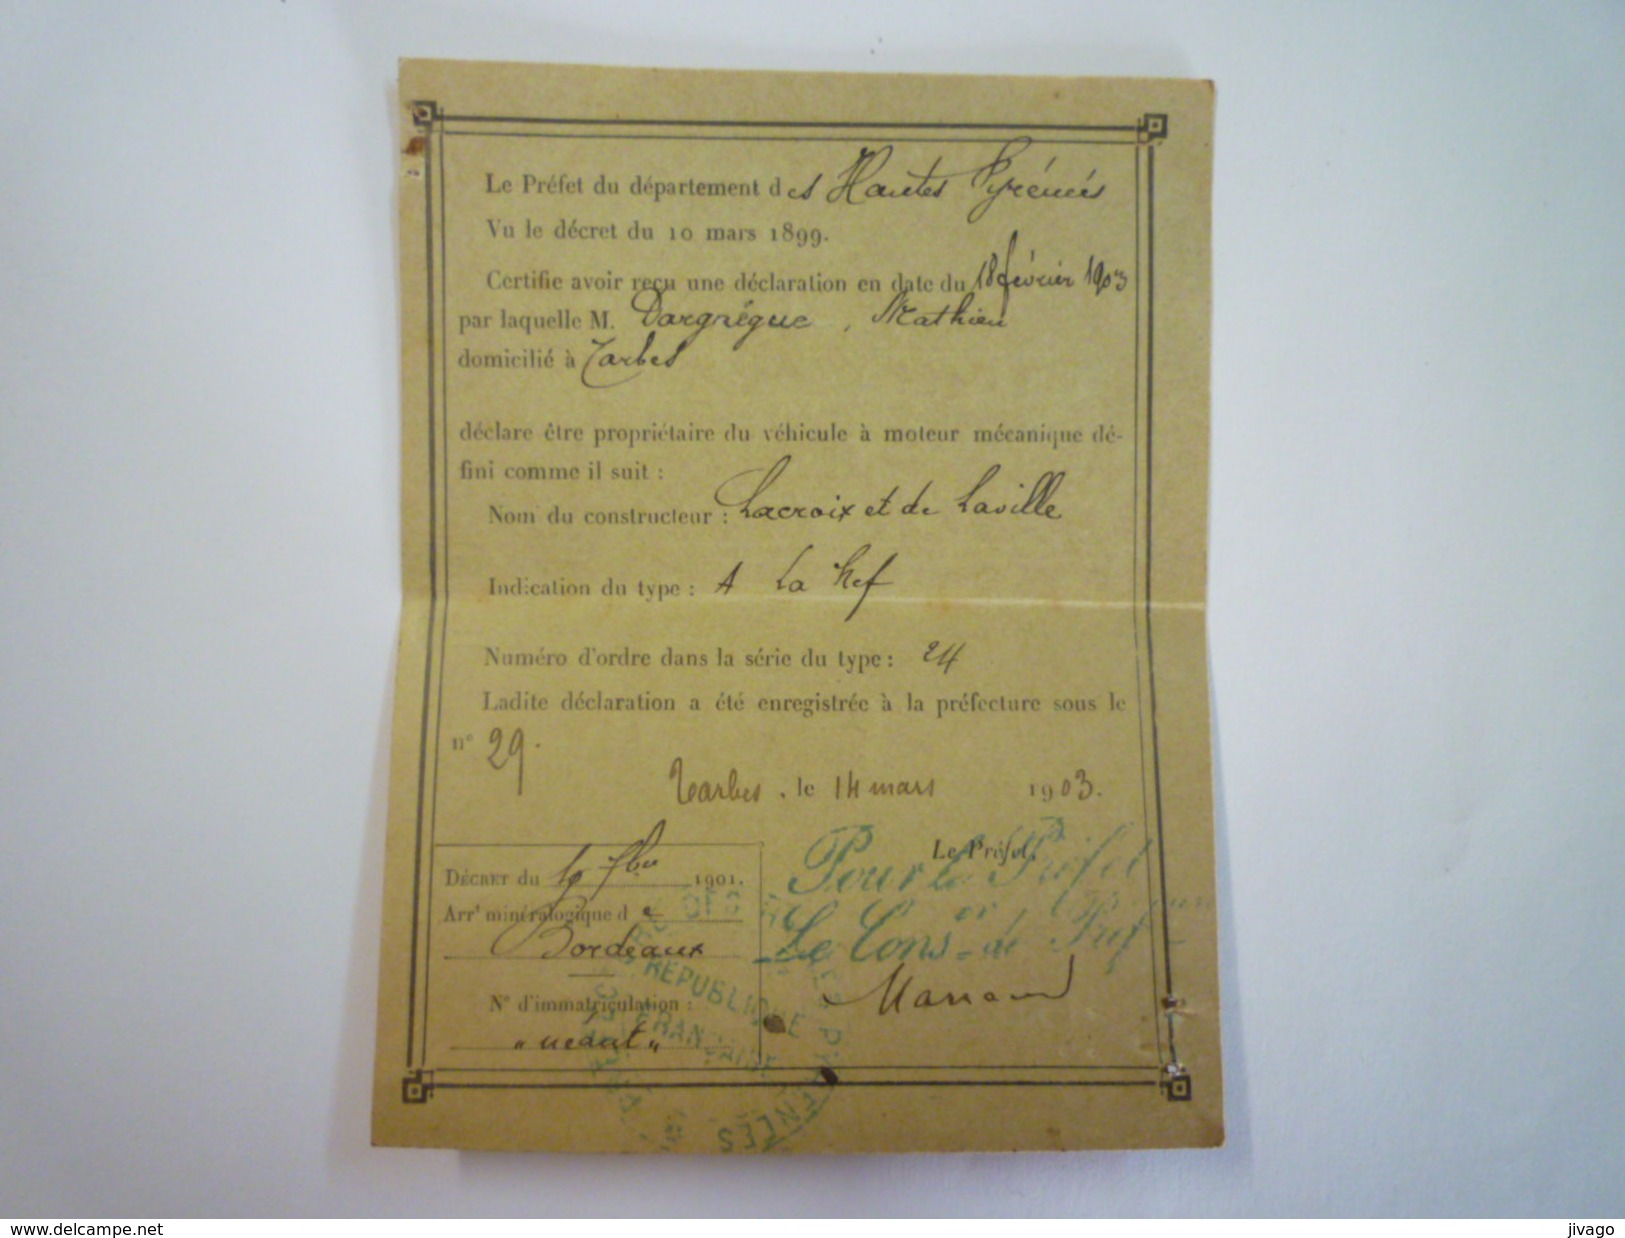 Le Préfet du département des Hautes Pyrénées
Vu le décret du 10 mars 1899.
Certifie avoir reçu une déclaration en date du 18 février 1903
par laquelle M. Dargnégue, Mathieu
domicilié à Tarbes
déclare être propriétaire du véhicule à moteur mécanique dé-
fini comme il suit :
Nom du constructeur : Lacroix et de Laville
Indication du type : A La Nef
Numéro d'ordre dans la série du type : 24
Ladite déclaration a été enregistrée à la préfecture sous le
n° 29.
Tarbes, le 14 mars 1903.
Le Préfet,
Pour le Préfet
Le Cons.er de Préf
DÉCRET du 7bre 1901.
Arrt minéralogique de
Bordeaux
N° d'immatriculation :
„ néant „
RÉPUBLIQUE
FRANÇAISE
PYRÉNÉES
www.delcampe.net
jivago